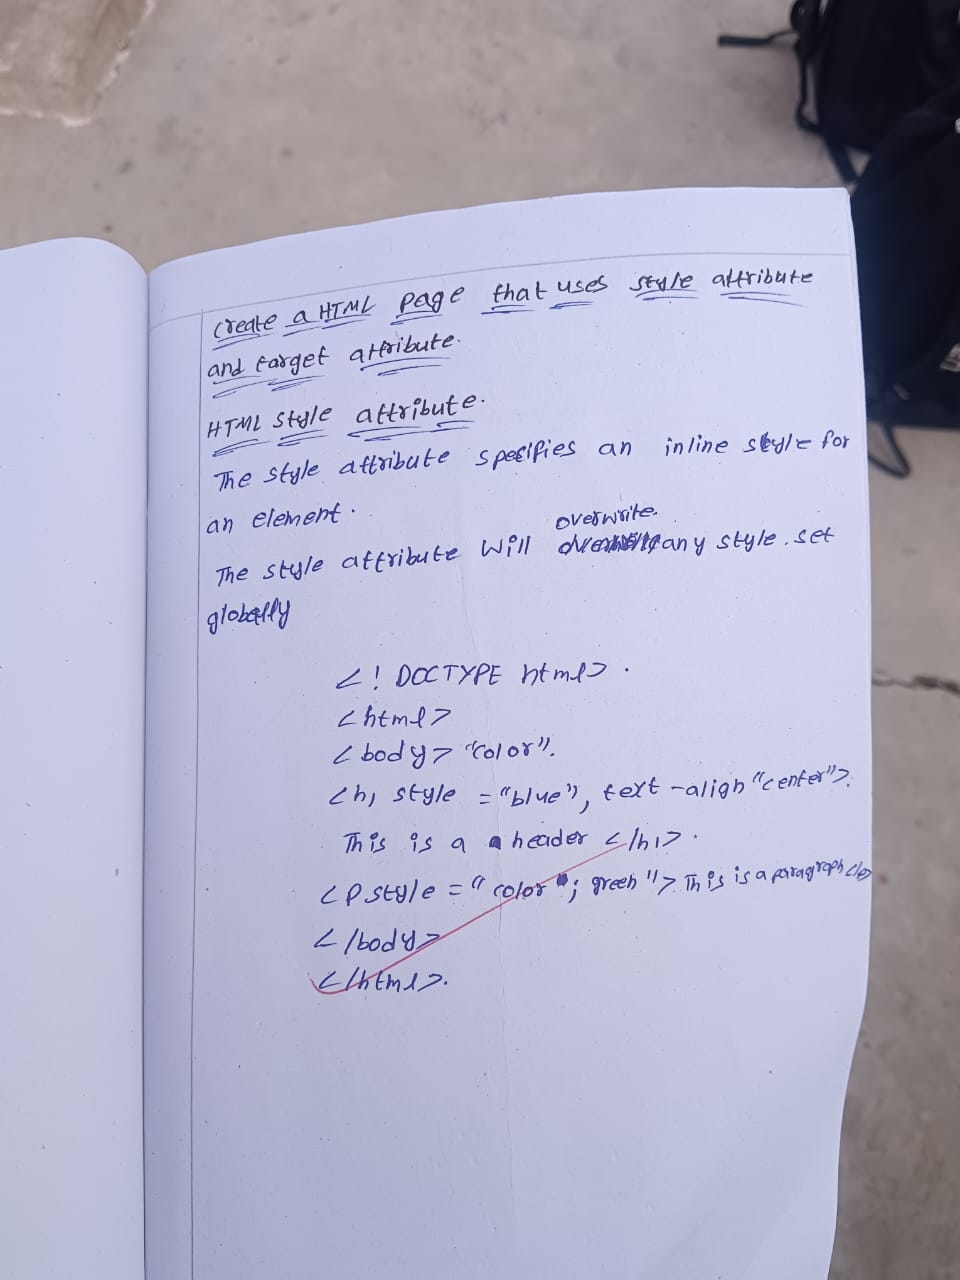 create a HTML page that uses style attribute
and target attribute.
HTML style attribute.
The style attribute specifies an inline style for
an element.
overwrite.
The style attribute will any style. set
globally
<! DOCTYPE html>.
<html>
<body> "color".
<h1 style = "blue"), text-align "center">.
This is a header </h1>.
<p style = "color"; green"> This is a paragraph </p>
</body>
</html>.